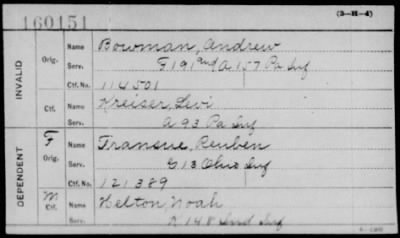 (3-H-4)
160151
INVALID
Orig. Name Bowman, Andrew
Serv. F 191 and A 157 Pa Inf
Ctf. No. 114501
Ctf. Name Kreiser, Levi
Serv. A 93 Pa Inf
DEPENDENT
F Orig. Name Transue, Reuben
Serv. G 13 Ohio Inf
Ctf. No. 121389
M Ctf. Name Helton, Noah
Serv. K 148 Ind Inf